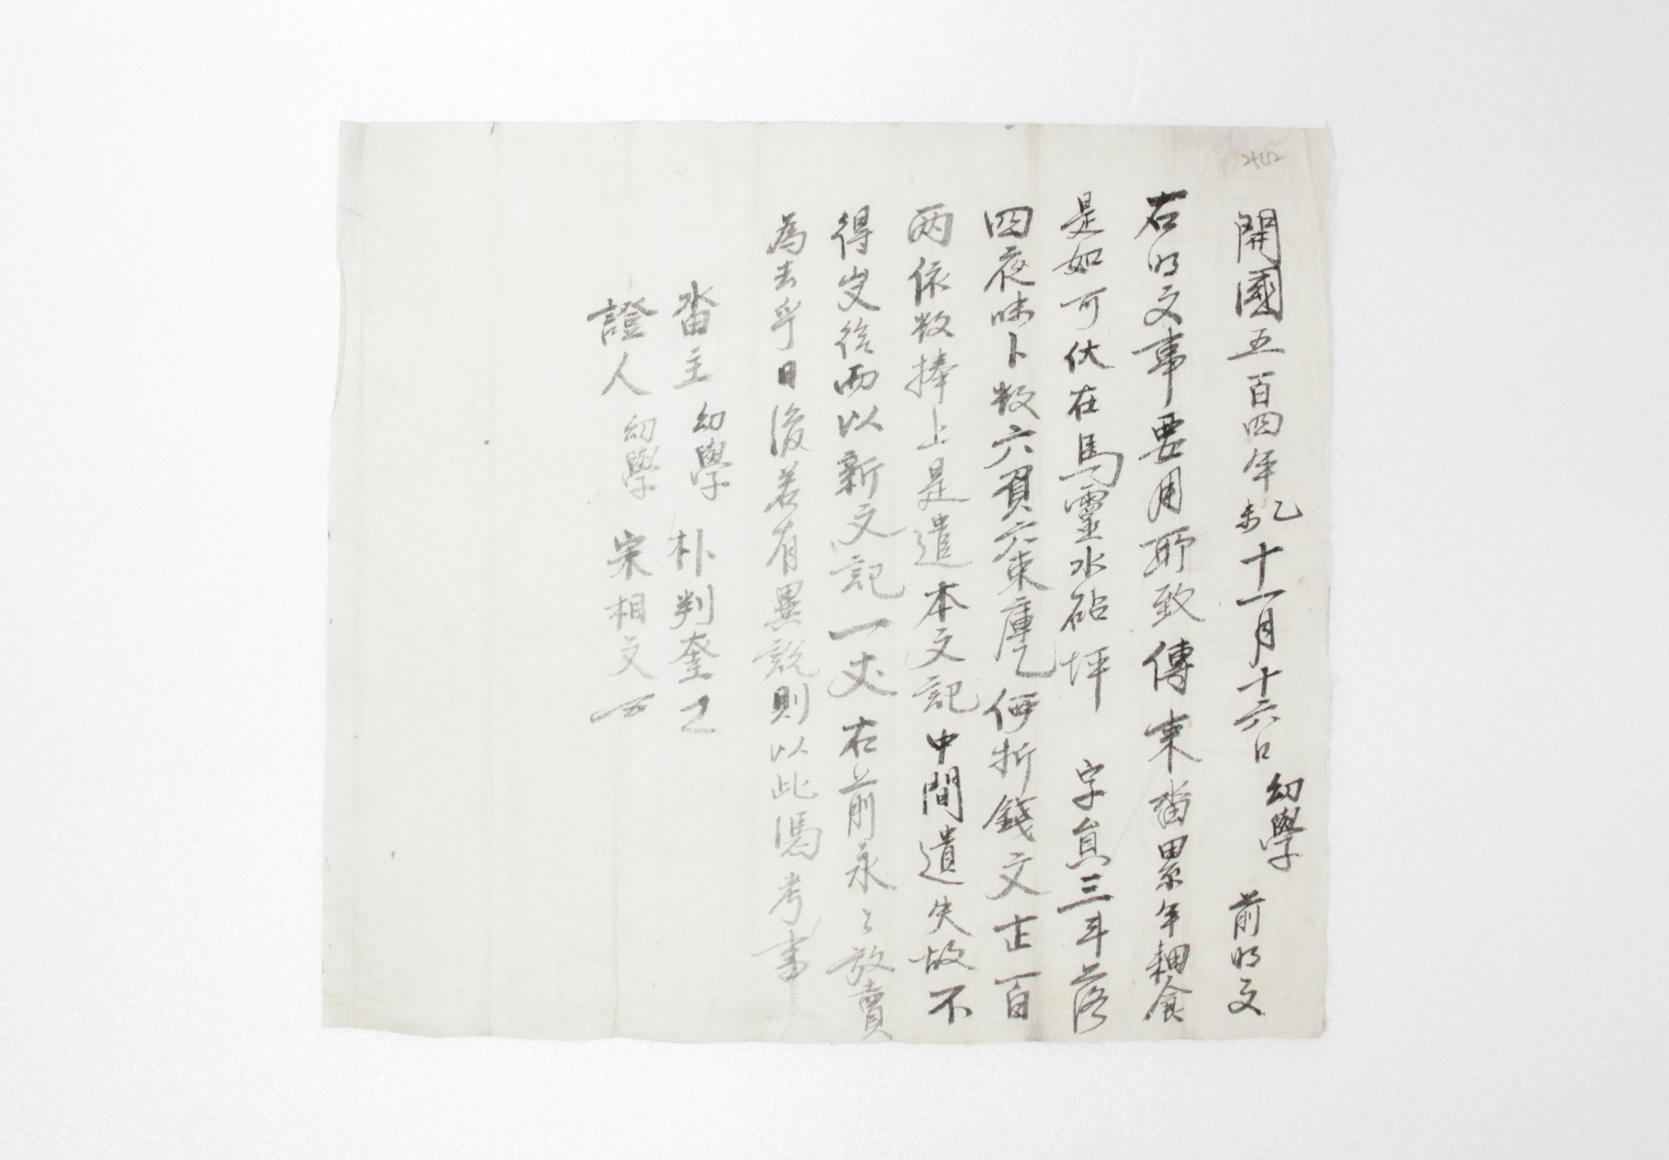 開國五百四年乙未十一月十六日 幼學 前明文
右明文事要用所致傳來畓累年耕食
是如可伏在馬靈水砧坪 字員三斗落
四夜味卜数六負六束庫乙 価折錢文正百
兩依数捧上是遣本文記中間遺失故不
得㕛後而以新文記一丈右前永々放賣
為去乎日後若有異説則以此憑考事
畓主 幼學 朴判奎
證人 幼學 宋相文